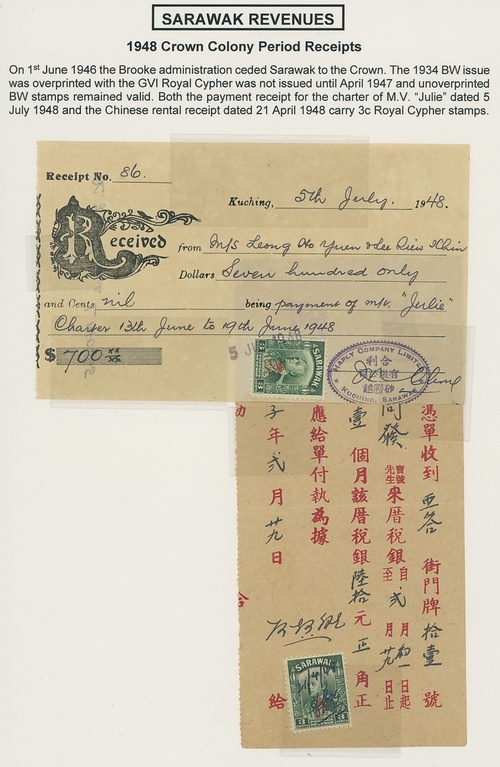 SARAWAK REVENUES
1948 Crown Colony Period Receipts
On 1st June 1946 the Brooke administration ceded Sarawak to the Crown. The 1934 BW issue
was overprinted with the GVI Royal Cypher was not issued until April 1947 and unoverprinted
BW stamps remained valid. Both the payment receipt for the charter of M.V. "Julie" dated 5
July 1948 and the Chinese rental receipt dated 21 April 1948 carry 3c Royal Cypher stamps.
Receipt No. 86.
Kuching, 5th July. 1948.
Received from M/S Leong Ho Yuen & Lee
Dollars Seven hundred only
and Cents nil being payment of m.v. "Julie"
Charter 13th June to 19th June 1948
$ 700 xx/xx
HAPLY COMPANY LIMITED
利合
KUCHING, SARAWAK
SARAWAK
憑單收到 亞答 街門牌 拾壹 號
同發 寶號 先生 來厝稅銀 自 弍 月 初一 日起 至 月 廿九 日止
壹 個月該厝稅銀 陸拾 元 正 角正
應給單付執為據
子 年 弍 月 廿九 日
給
SARAWAK